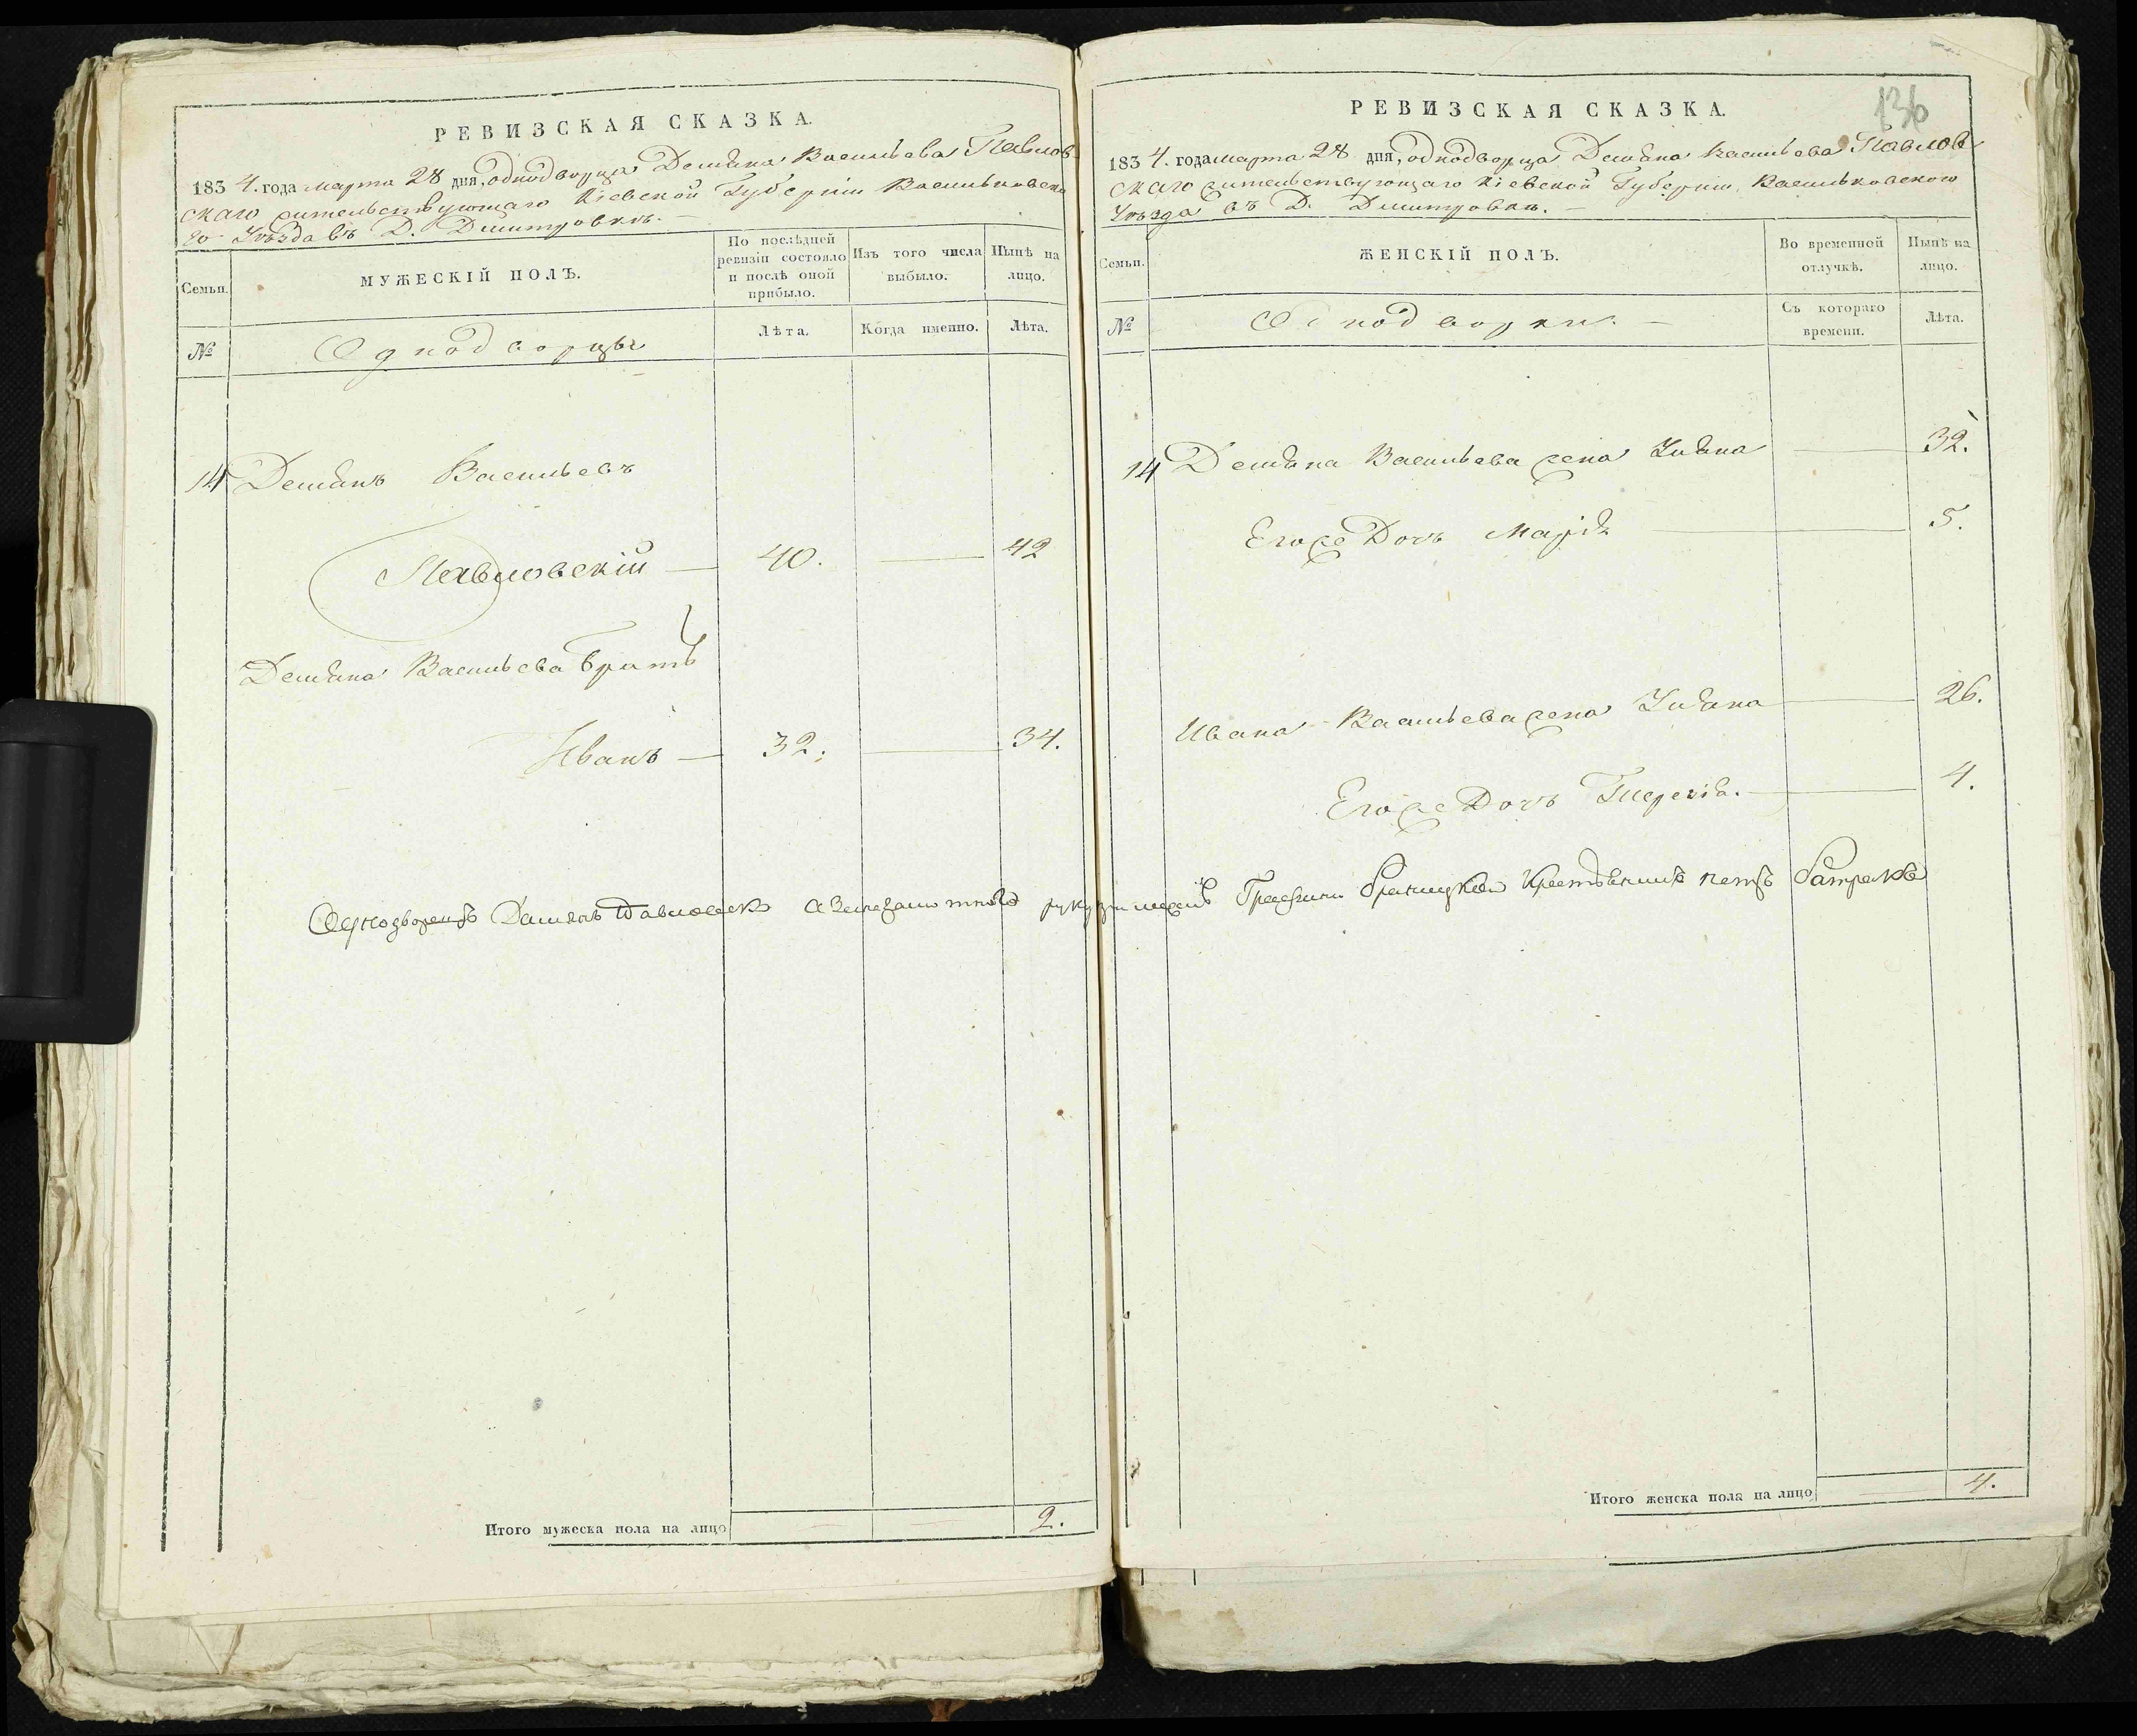 РЕВИЗСКАЯ СКАЗКА.
1834. года марта 28 дня, однодворца Демьяна Васильева Павлов-
скаго жительствующаго Кіевской Губерніи Васильковска
го Уѣзда въ Д. Дмитровкѣ.
Семьи.
МУЖЕСКІЙ ПОЛЪ.
По послѣдней ревизіи состояло и послѣ оной прибыло.
Изъ того числа выбыло.
Нынѣ на лицо.
№
Однодворцы
Лѣта.
Когда именно.
Лѣта.
14 Демьянъ Васильевъ
Павловскій — 40. — 42
Демьяна Васильева братъ
Иванъ — 32. — 34.
Однодворецъ Дамянъ Павловск а занего
Итого мужеска пола на лицо — — 2.
136
РЕВИЗСКАЯ СКАЗКА.
1834. года марта 28 дня, однодворца Демьяна Васильева Павлов
скаго жительствующаго Кіевской Губерніи, Васильковскаго
Уѣзда въ Д. Дмитровкѣ.
Семьи.
ЖЕНСКІЙ ПОЛЪ.
Во временной отлучкѣ.
Нынѣ на лицо.
№
Однодворки. —
Съ котораго времени.
Лѣта.
14 Демьяна Васильева жена Ульяна — 32.
Его же Дочь Марія — 5.
Ивана Васильева жена Ульяна — 26.
Его же Дочь — 4.
Графини Браницкой
Итого женска пола на лицо — 4.